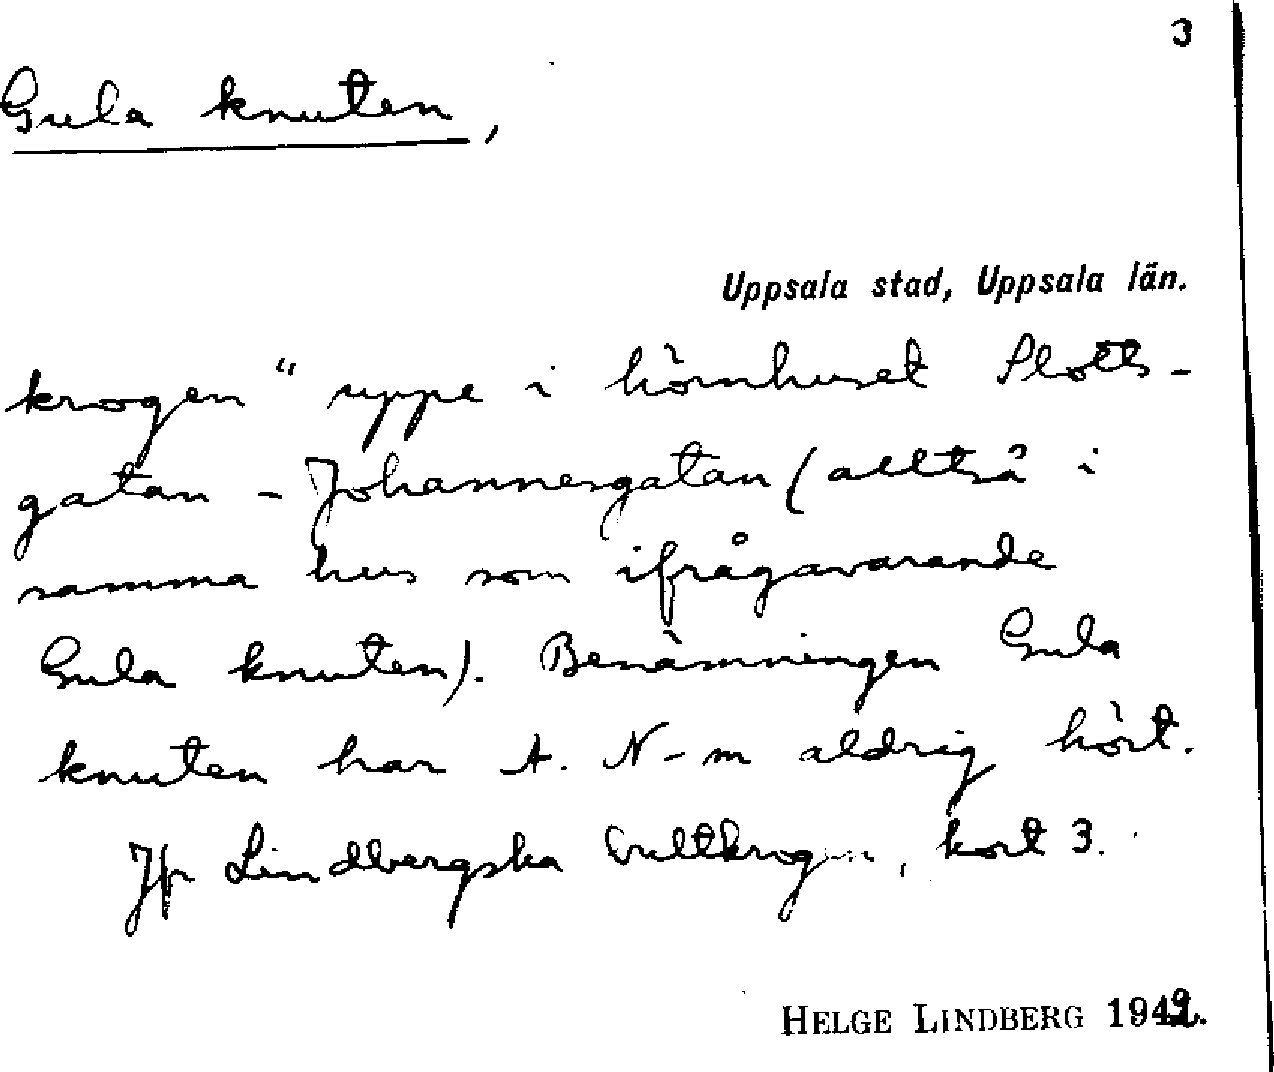 3
Gula knuten,
Uppsala stad, Uppsala län.
krogen" uppe i hörnhuset Slotts-
gatan - Johannesgatan (alltså i
samma hus som ifrågavarande
Gula knuten). Benämningen Gula
knuten har A. N-m aldrig hört.
Jfr Lindbergska kort 3.
HELGE LINDBERG 194